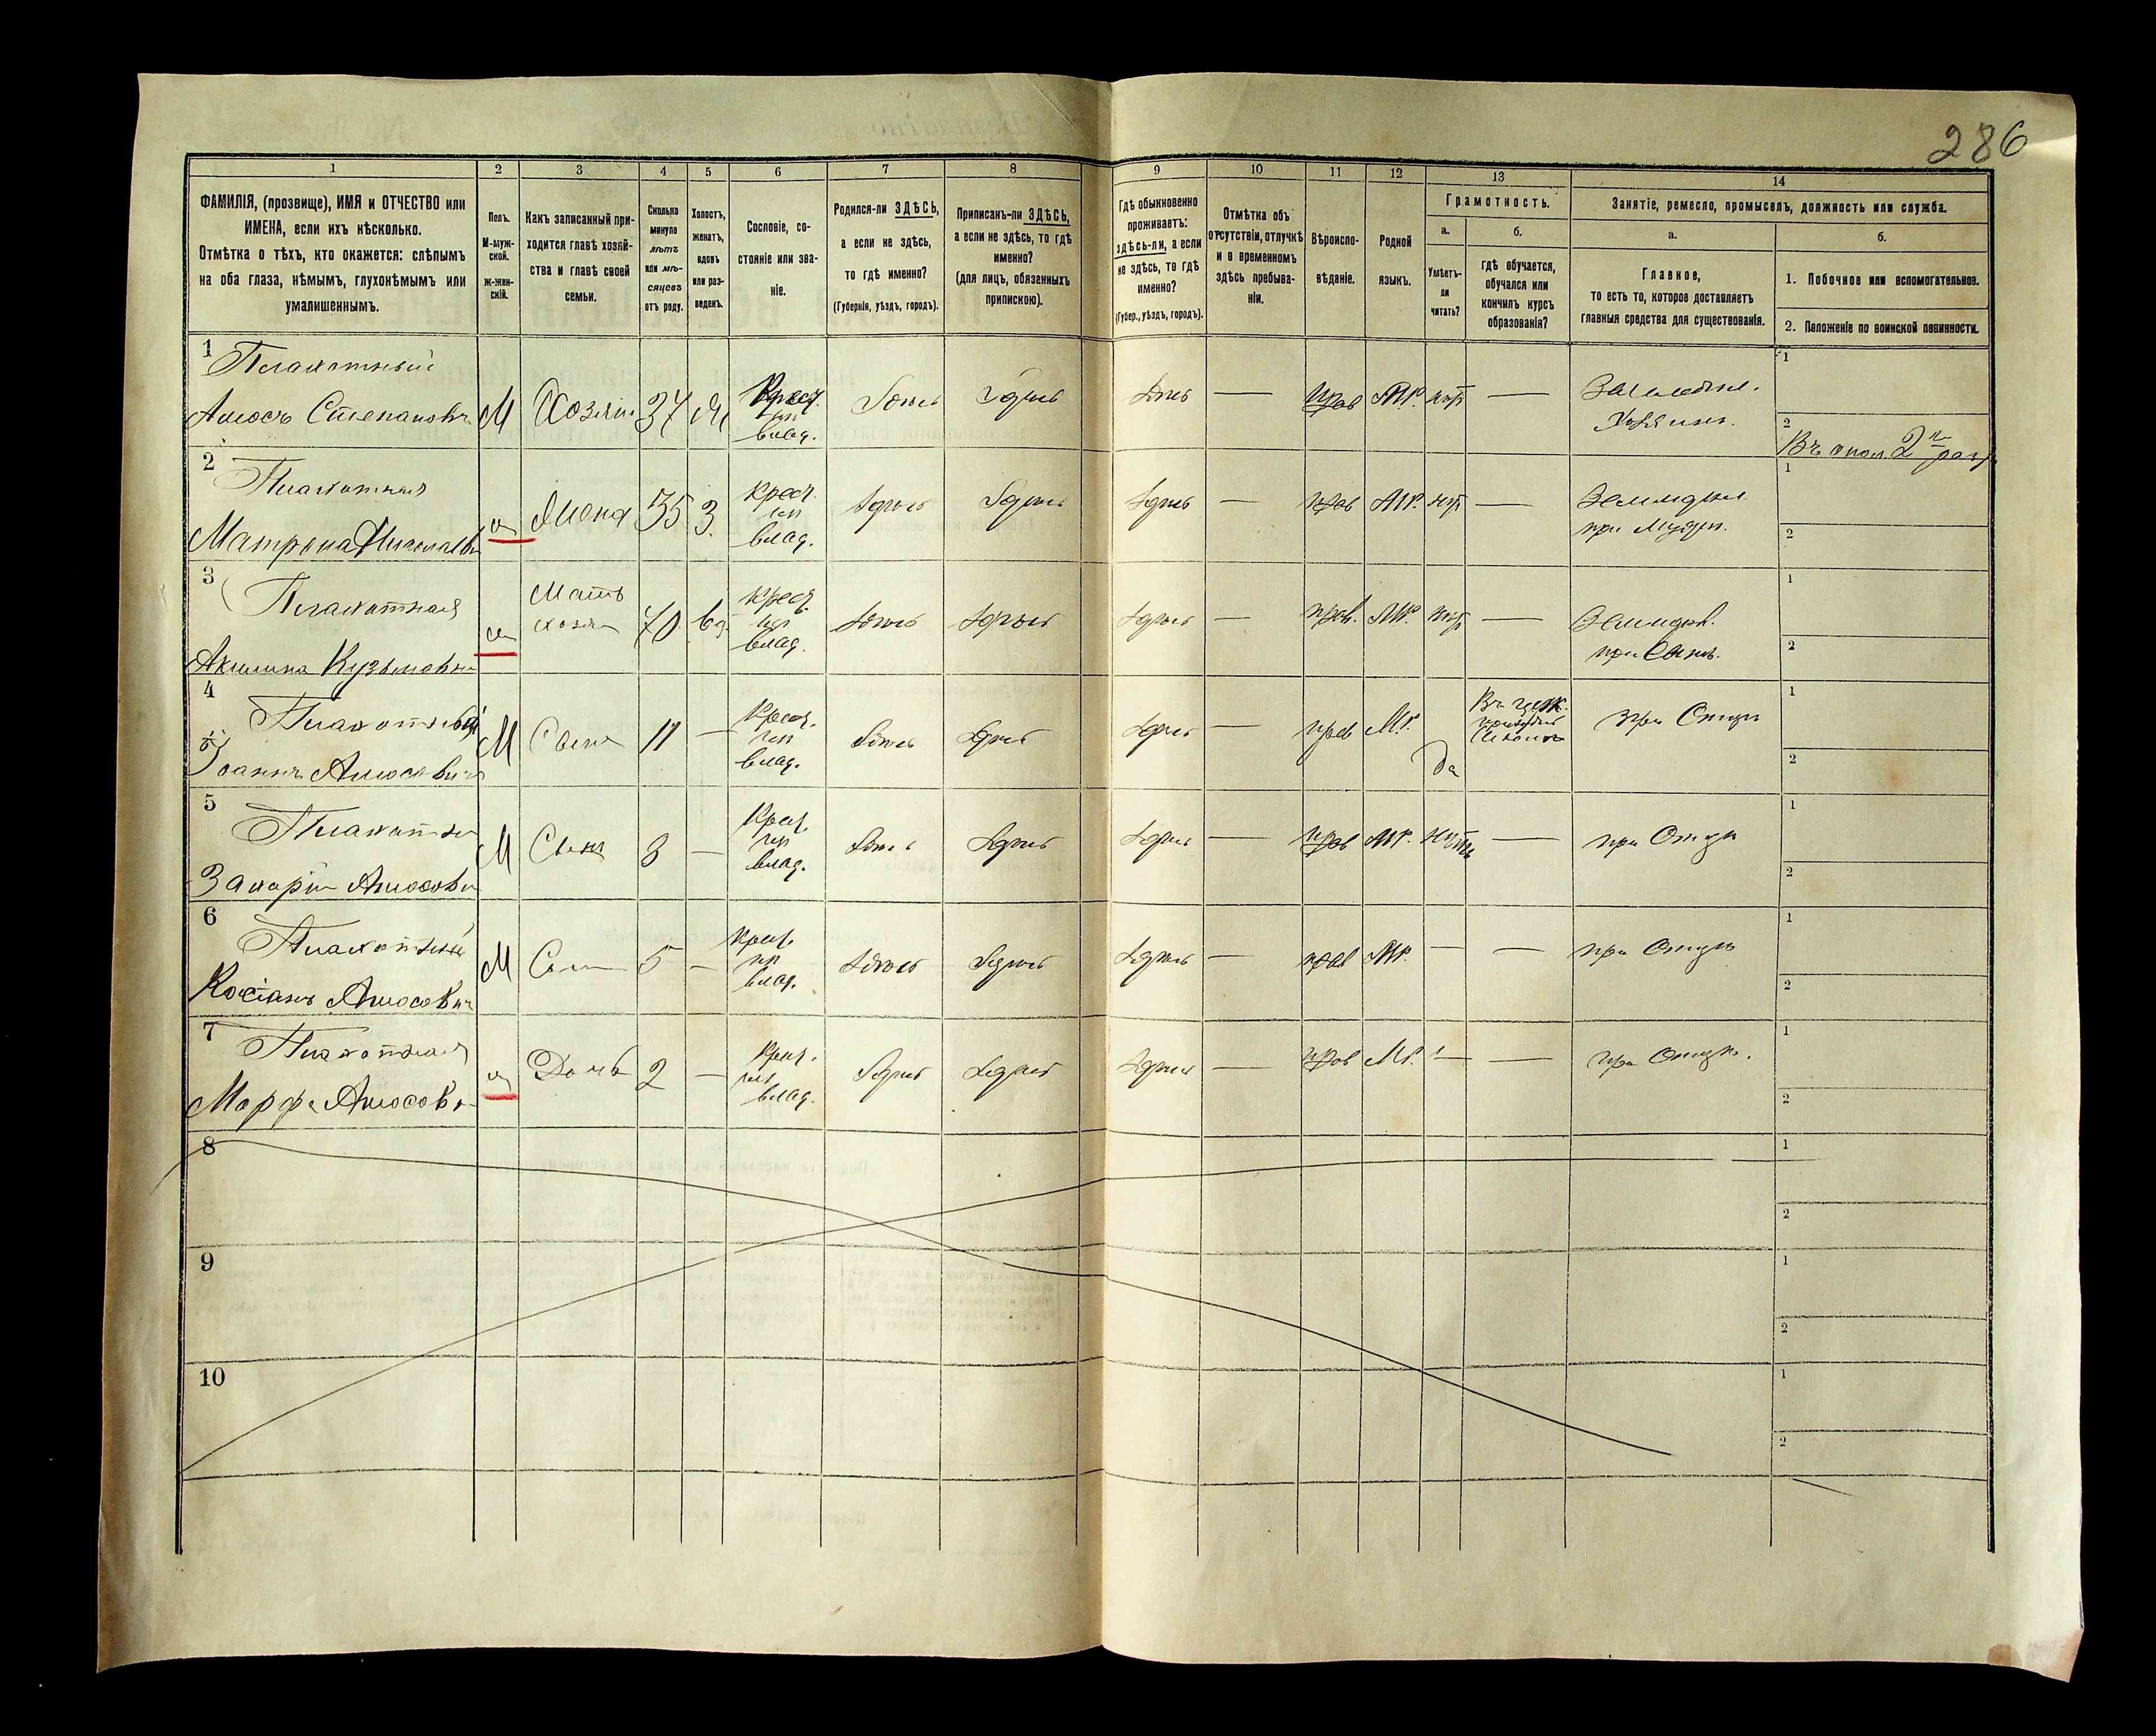 286
1 2 3 4 5 6 7 8 9 10 11 12 13 14
ФАМИЛІЯ, (прозвище), ИМЯ и ОТЧЕСТВО или
ИМЕНА, если ихъ нѣсколько.
Отмѣтка о тѣхъ, кто окажется: слѣпымъ
на оба глаза, нѣмымъ, глухонѣмымъ или
умалишеннымъ.
Полъ.
М-муж-
ской.
Ж-жен-
скій.
Какъ записанный при-
ходится главѣ хозяй-
ства и главѣ своей
семьи.
Сколько
минуло
лѣтъ
или мѣ-
сяцевъ
отъ роду.
Холостъ,
женатъ,
вдовъ
или раз-
веденъ.
Сословіе, со-
стояніе или зва-
ніе.
Родился-ли ЗДѢСЬ,
а если не здѣсь,
то гдѣ именно?
(Губернія, уѣздъ, городъ).
Приписанъ-ли ЗДѢСЬ,
а если не здѣсь, то гдѣ
именно?
(для лицъ, обязанныхъ
припискою).
Гдѣ обыкновенно
проживаетъ:
здѣсь-ли, а если
не здѣсь, то гдѣ
именно?
(Губер., уѣздъ, городъ).
Отмѣтка объ
отсутствіи, отлучкѣ
и о временномъ
здѣсь пребыва-
ніи.
Вѣроиспо-
вѣданіе.
Родной
языкъ.
Грамотность.
а.
Умѣетъ-
ли
читать?
б.
гдѣ обучается,
обучался или
кончилъ курсъ
образованія?
Занятіе, ремесло, промыселъ, должность или служба.
а.
Главное,
то есть то, которое доставляетъ
главныя средства для существованія.
б.
1. Побочное или вспомогательное.
2. Положеніе по воинской повинности.
1 Плахотный
Амосъ Степановъ М Хозяин 37 Ж Крест. влад. Здѣсь Здѣсь Здѣсь — прав МР. нѣт — Земледѣл. Хозяинъ. 1
2 Въ опол. 2 разр
2 Плахотная
Матрона Николаев ж Жена 35 З. крест. влад. Здѣсь Здѣсь Здѣсь — прав МР. нѣт — Земледѣл. при Мужѣ. 1
2
3 Плахотная
Акилина Кузьмовна ж Мать хозяи 70 вд. крест. влад. Здѣсь Здѣсь Здѣсь — прав. МР. нѣт — Земледѣл. при Сынѣ. 1
2
4 Плахотный
Іоаннъ Амосович М Сынъ 11 — крест. влад. Здѣсь Здѣсь Здѣсь — прав МР. Да Въ церк. приход. Школѣ при Отцѣ 1
2
5 Плахотны
Захарій Амосови М Сынъ 8 — Крест. влад. Здѣсь Здѣсь Здѣсь — прав МР. нѣтъ — при Отцѣ 1
2
6 Плахотный
Косіанъ Амосович М Сын 5 — крест. влад. Здѣсь Здѣсь Здѣсь — прав МР. — — при Отцѣ 1
2
7 Плахотная
Марфа Амосова ж Дочь 2 — Крест. влад. Здѣсь Здѣсь Здѣсь — прав МР. — — при Отцѣ. 1
2
8 1
2
9 1
2
10 1
2